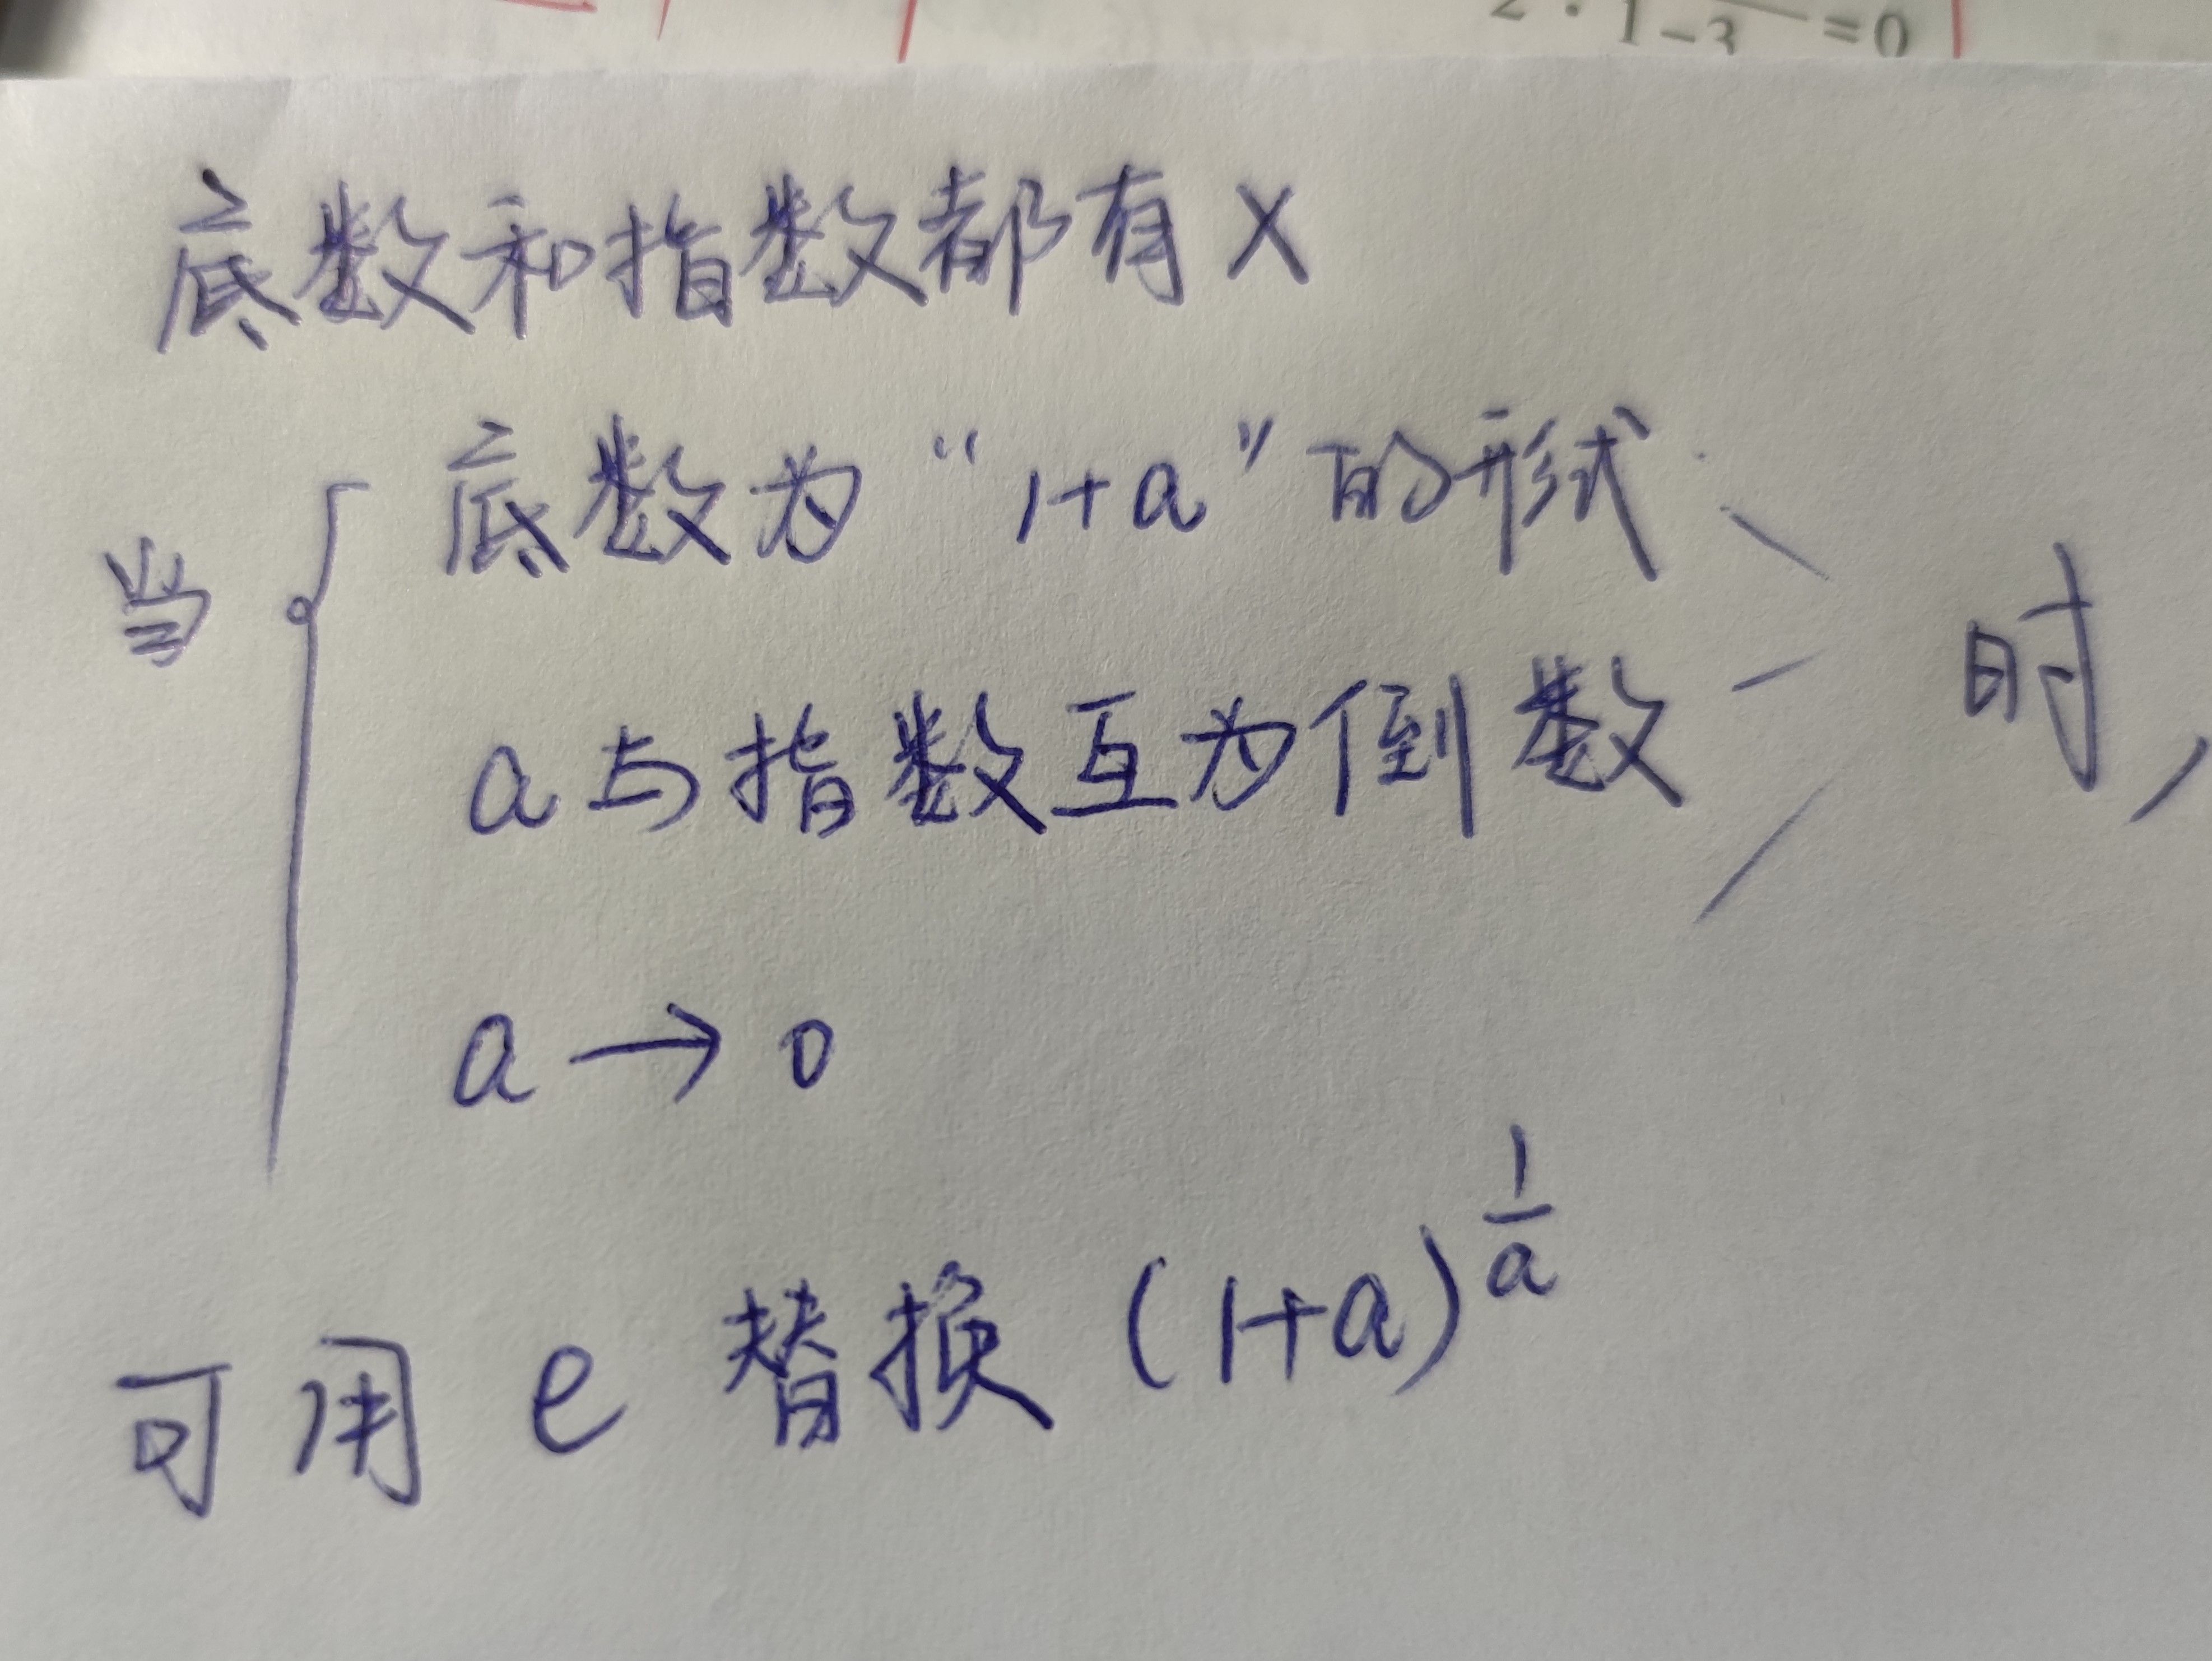 2 · 1-3 =0
底数和指数都有 X
当 底数为“1+a”的形式
a与指数互为倒数 时,
a → 0
可用 e 替换 (1+a)^{\frac{1}{a}}